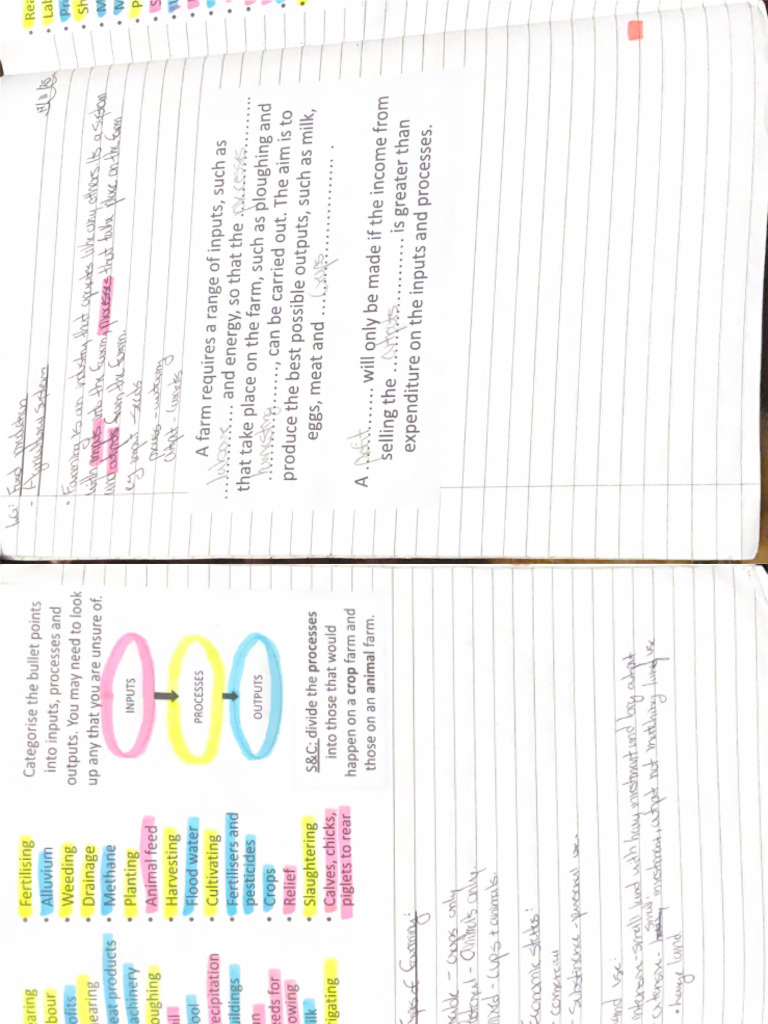 14/11/25
LQ: Food production
- Agricultural System
• Farming is an industry that operates like any others its a system
with inputs into the farm, processes that take place on the farm
and outputs from the farm.
eg input - seeds
process - watering
output - carrots
A farm requires a range of inputs, such as
labour and energy, so that the processes
that take place on the farm, such as ploughing and
harvesting, can be carried out. The aim is to
produce the best possible outputs, such as milk,
eggs, meat and crops.
A profit will only be made if the income from
selling the outputs is greater than
expenditure on the inputs and processes.
• Rea
• Lab
• Pr
• Sh
• M
• M
• P
• S
earing
bour
ofits
hearing
eat products
achinery
oughing
il
ool
recipitation
ildings
n
eeds for
owing
ilk
rigating
• Fertilising
• Alluvium
• Weeding
• Drainage
• Methane
• Planting
• Animal feed
• Harvesting
• Flood water
• Cultivating
• Fertilisers and
pesticides
• Crops
• Relief
• Slaughtering
• Calves, chicks,
piglets to rear
Categorise the bullet points
into inputs, processes and
outputs. You may need to look
up any that you are unsure of.
INPUTS
PROCESSES
OUTPUTS
S&C: divide the processes
into those that would
happen on a crop farm and
those on an animal farm.
ypes of farming:
rable - crops only
storal - animals only
mixed - crops + animals.
Economic status:
commercial
- subsistence - personal use
and use:
intensive - small land with heavy investment and big output
extensive - small investment, output not matching land use
• large land